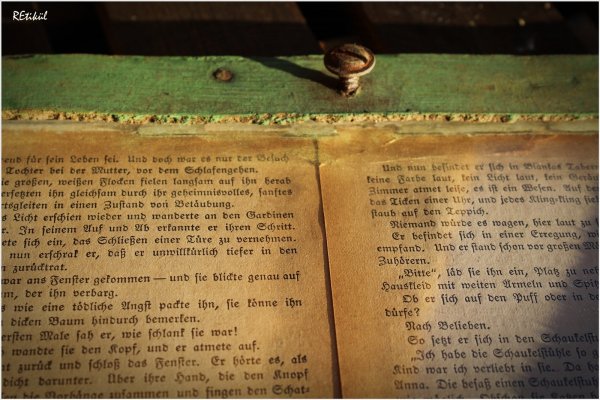 REtikül
rend für sein Leben sei. Und doch war es nur der Besuch
Tochter bei der Mutter, vor dem Schlafengehen.
die großen, weißen Flocken fielen langsam auf ihn herab
ersetzten ihn gleichsam durch ihr geheimnisvolles, sanftes
rtsgleiten in einen Zustand von Betäubung.
as Licht erschien wieder und wanderte an den Gardinen
er. In seinem Auf und Ab erkannte er ihren Schritt.
ete sich ein, das Schließen einer Türe zu vernehmen.
nun erschrak er, daß er unwillkürlich tiefer in den
n zurücktrat.
war ans Fenster gekommen — und sie blickte genau auf
um, der ihn verbarg.
s wie eine tödliche Angst packte ihn, sie könne ihn
dicken Baum hindurch bemerken.
ersten Male sah er, wie schlank sie war!
wandte sie den Kopf, und er atmete auf.
at zurück und schloß das Fenster. Er hörte es, als
dicht darunter. Über ihre Hand, die den Knopf
die Vorhänge zusammen und fingen den Schat-
Und nun befindet er sich in Biankas
keine Farbe laut, kein Licht laut, kein
Zimmer atmet leise, es ist ein Wesen. Auf
das Ticken einer Uhr, und jedes Kling-Kling
staub auf den Teppich.
Niemand würde es wagen, hier laut zu
Er befindet sich in einer Erregung, wi
empfand. Und er stand schon vor großen
Zuhörern.
„Bitte“, lädt sie ihn ein, Platz zu ne
Hauskleid mit weiten Ärmeln und Spi
Ob er sich auf den Puff oder in d
dürfe?
Nach Belieben.
So setzt er sich in den Schaukelstu
„Ich habe die Schaukelstühle so g
Kind war ich verliebt in sie. Da ha
Anna. Die besaß einen Schaukelst